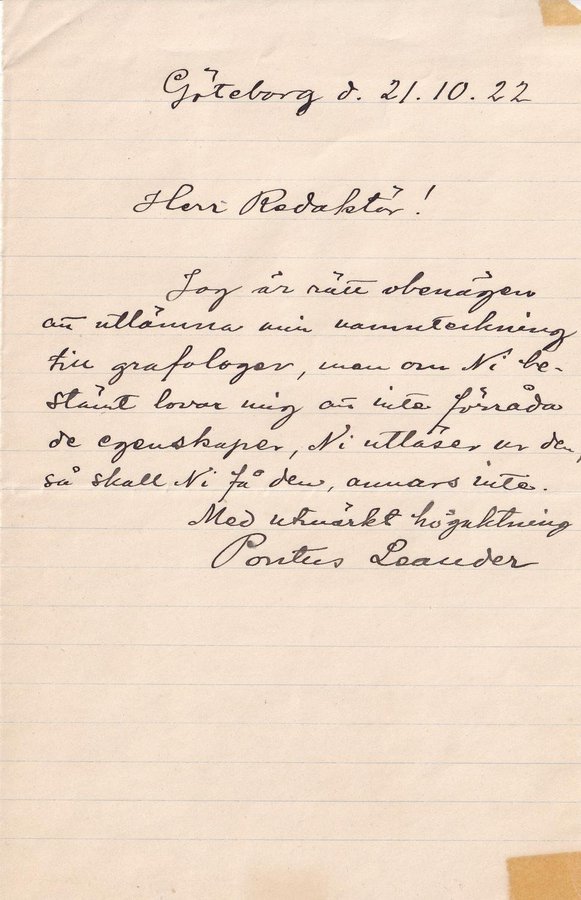 Göteborg d. 21.10.22
Herr Redaktör!
Jag är rätt obenägen
att utlämna min namnteckning
till grafologer, men om Ni be-
stämt lovar mig att inte förråda
de egenskaper, Ni utläser ur den,
så skall Ni få den, annars inte.
Med utmärkt högaktning
Pontus Leander